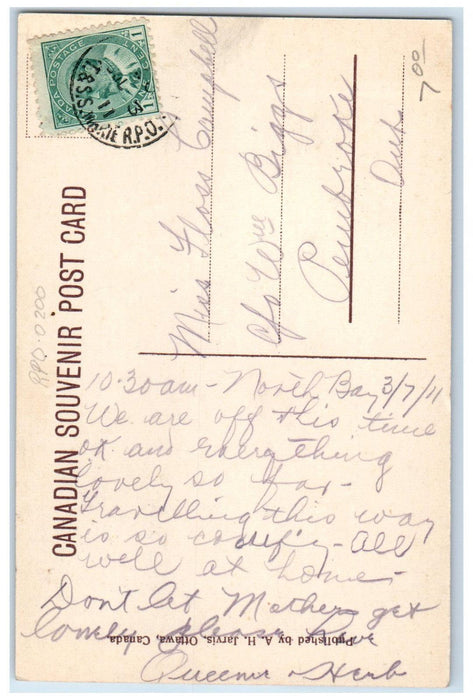 CANADIAN SOUVENIR POST CARD
CANADA POSTAGE
& S.S. MARIE R.P.O.
11
7 00
RPO-0200
Miss Floss Campbell
c/o Wm Biggs
Pembroke
Ont
10-30 am - North Bay 3/7/11
We are off this time
ok and everything
lovely so far -
Travelling this way
is so comfy - All
well at home -
Don't let Mother get
lonely, please Love
Queenie & Herb
Published by A. H. Jarvis, Ottawa, Canada.